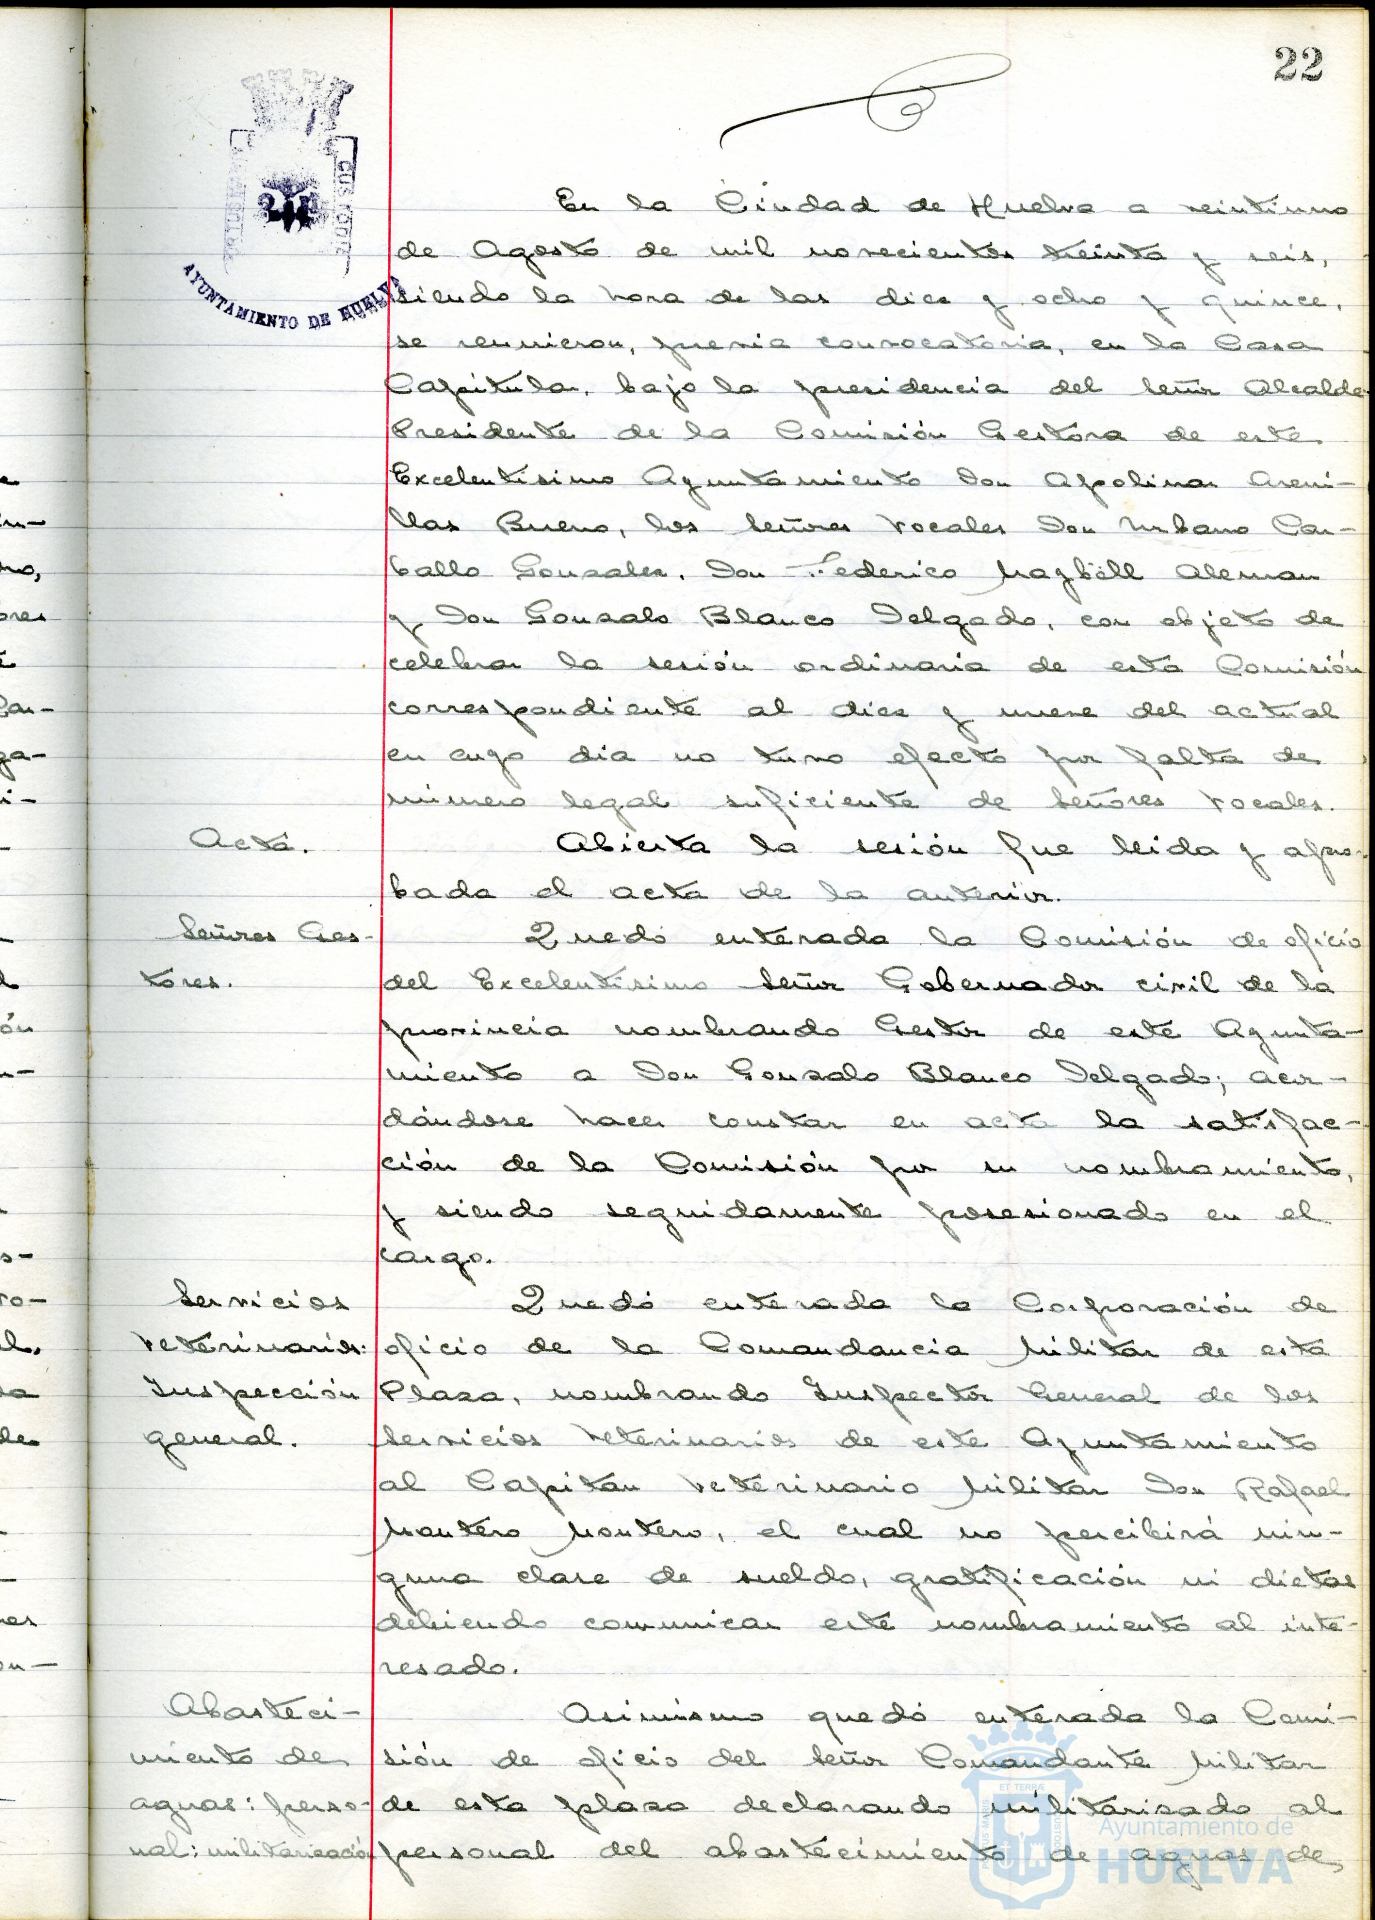 22
AYUNTAMIENTO DE HUELVA
En la Ciudad de Huelva a veintiuno
de Agosto de mil novecientos treinta y seis,
siendo la hora de las diez y ocho y quince,
se reunieron, previa convocatoria, en la Casa
Capitular, bajo la presidencia del Señor Alcalde
Presidente de la Comisión Gestora de este
Excelentisimo Ayuntamiento Don Apolinar Areni-
llas Bueno, los Señores Vocales Don Urbano Car-
ballo Gonzalez, Don Federico Alemán
y Don Gonzalo Blanco Delgado, con objeto de
celebrar la sesión ordinaria de esta Comisión
correspondiente al diez y nueve del actual
en cuyo dia no tuvo efecto por falta de
número legal suficiente de Señores Vocales.
Acta.
Abierta la sesión fue leida y apro-
bada el acta de la anterior.
Señores Ges-
tores.
Quedó enterada la Comisión de oficio
del Excelentisimo Señor Gobernador civil de la
provincia nombrando Gestor de este Ayunta-
miento a Don Gonzalo Blanco Delgado; acor-
dándose hacer constar en acta la satisfac-
ción de la Comisión por su nombramiento,
y siendo seguidamente posesionado en el
cargo.
Servicios
Veterinarios:
Inspección
general.
Quedó enterada la Corporación de
oficio de la Comandancia Militar de esta
Plaza, nombrando Inspector General de los
Servicios Veterinarios de este Ayuntamiento
al Capitan Veterinario Militar Don Rafael
Montero Montero, el cual no percibirá nin-
guna clase de sueldo, gratificación ni dietas
debiendo comunicar este nombramiento al inte-
resado.
Abasteci-
miento de
aguas: perso-
nal: militarización
Asimismo quedó enterada la Comi-
sión de oficio del Señor Comandante Militar
de esta plaza declarando militarizado al
personal del abastecimiento de aguas de
Ayuntamiento de
HUELVA